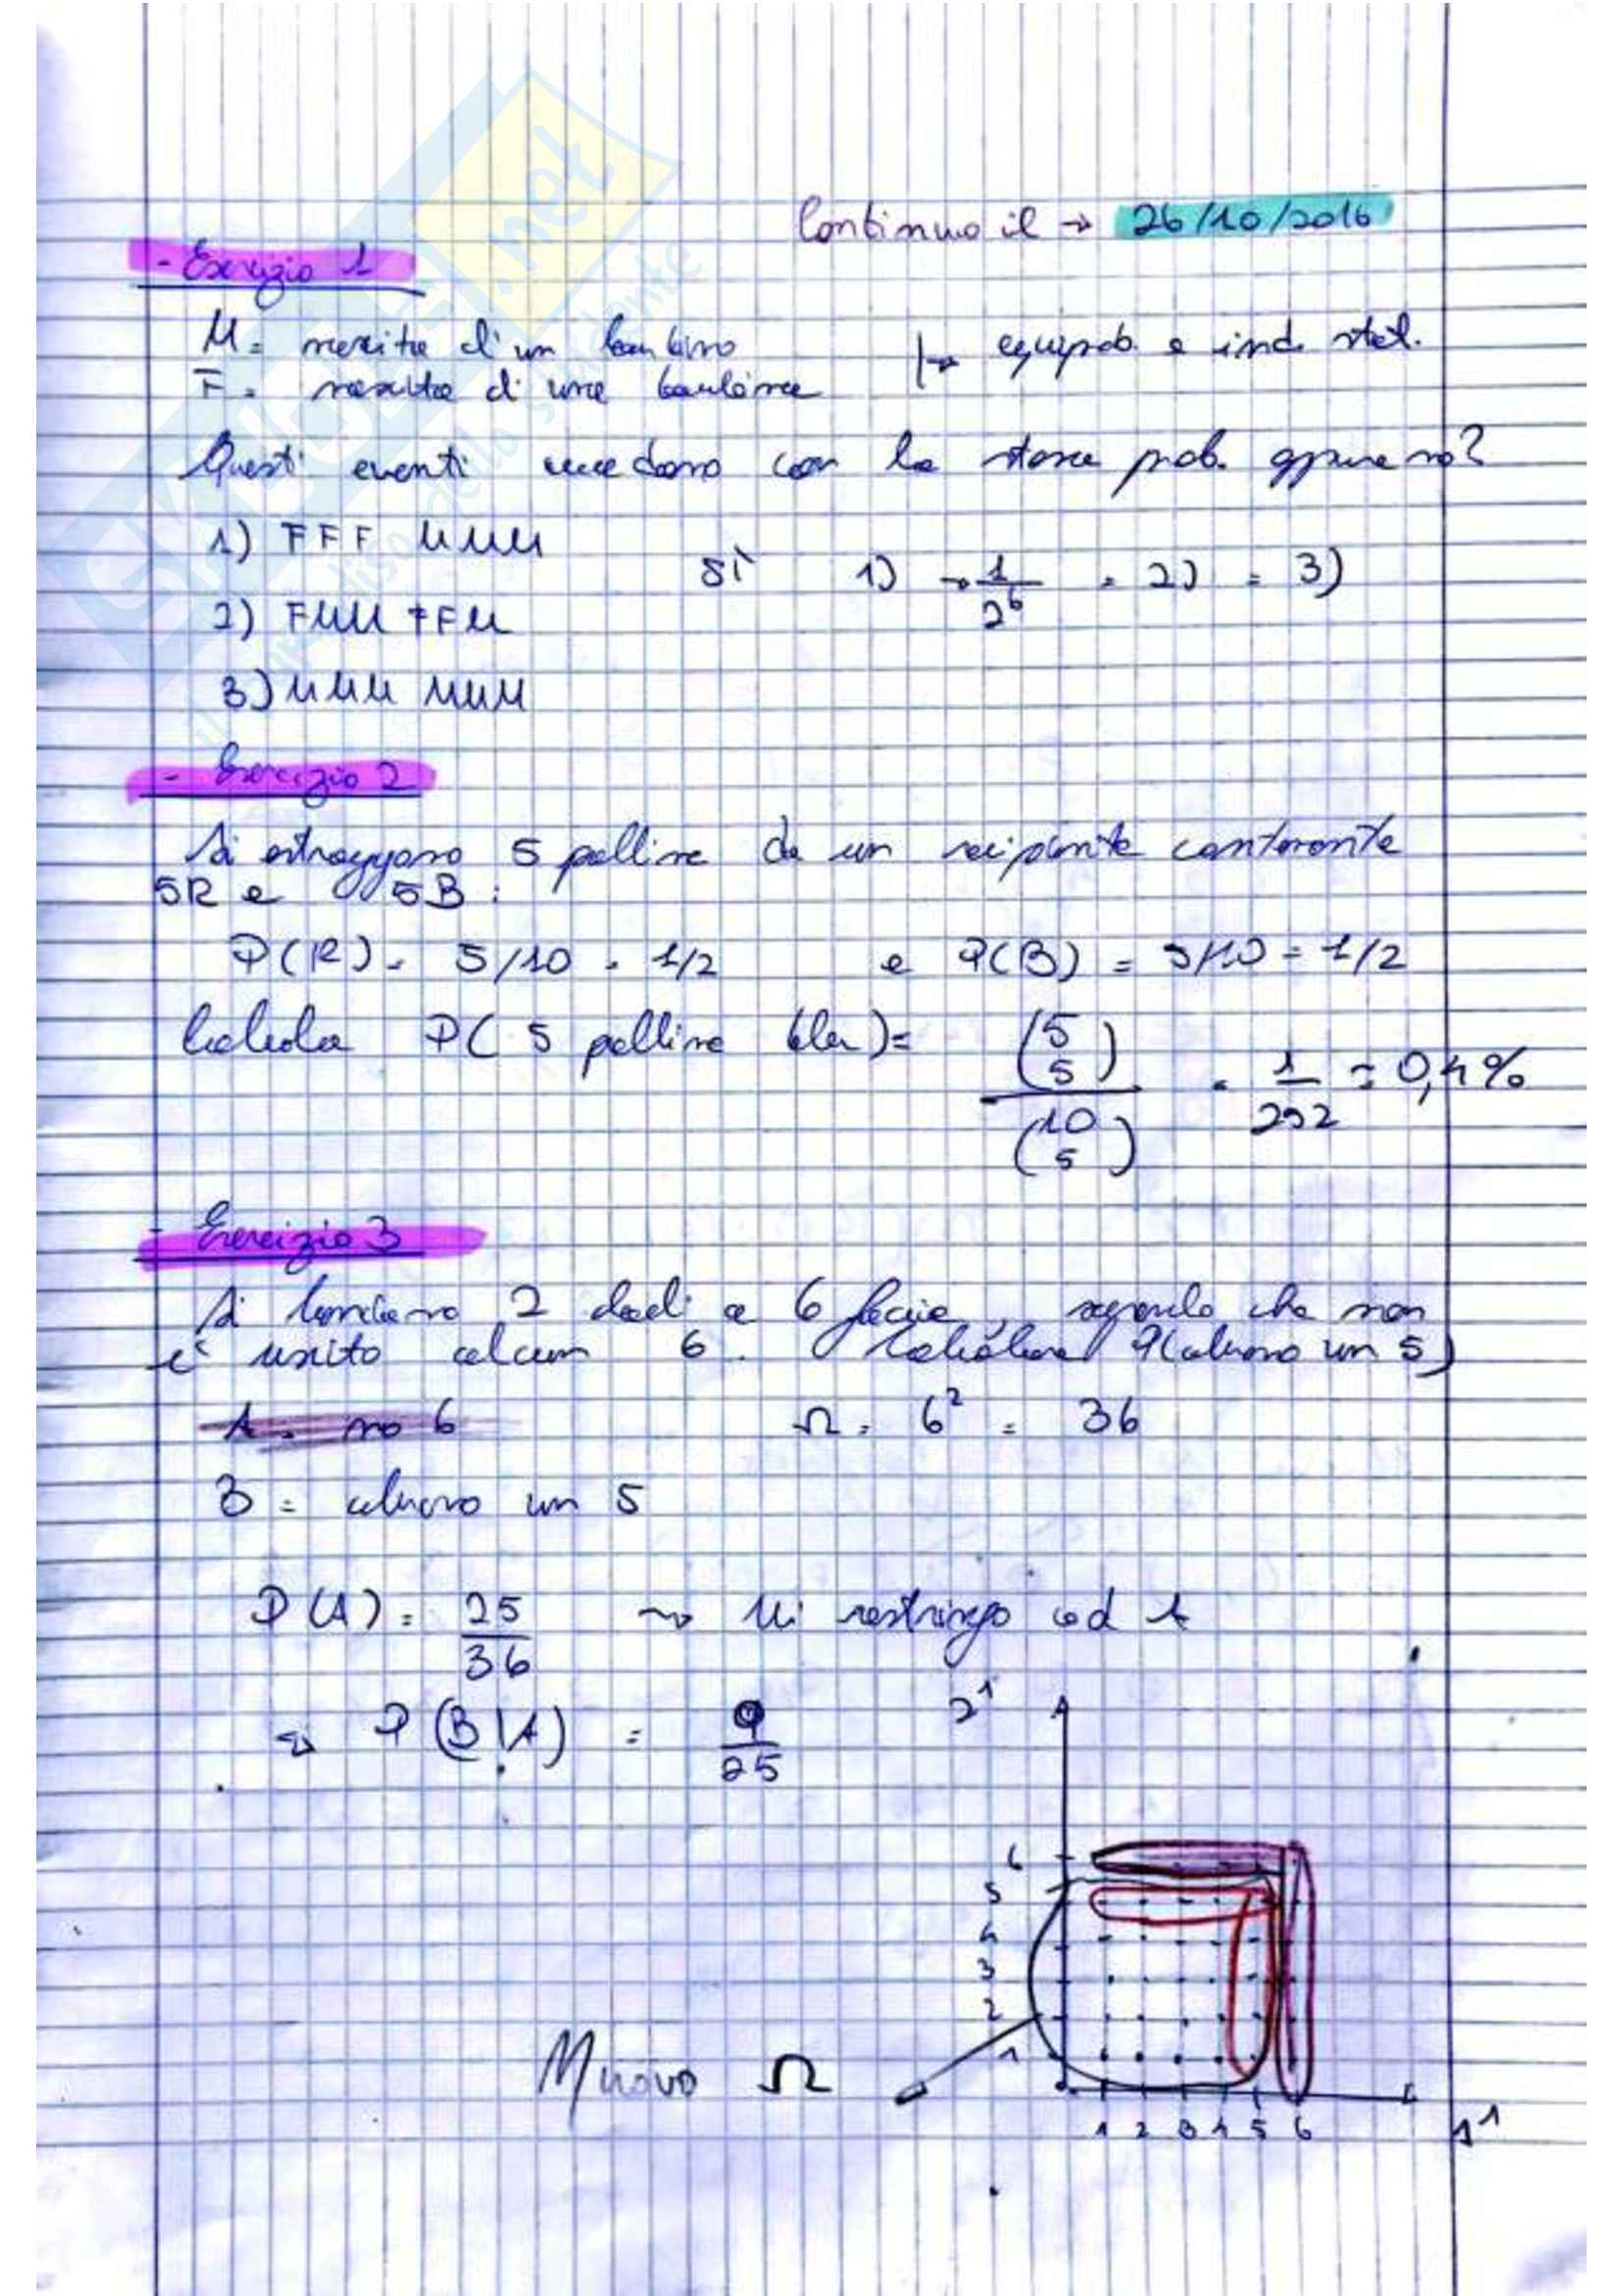 Continuo il → 26/10/2016
- Esercizio 1
M = nascita di un bambino |→ equiprob. e ind. stat.
F = nascita di una bambina
Questi eventi accadono con la stessa prob. oppure no?
1) FFF MMM
sì 1) → 1/2⁶ = 2) = 3)
2) FMM FFM
3) MMM MMM
- Esercizio 2
Si estraggono 5 palline da un recipiente contenente
5R e 5B :
P(R) = 5/10 = 1/2 e P(B) = 5/10 = 1/2
Calcola P( 5 palline blu) = (5 5)/(10 5) = 1/252 = 0,4%
- Esercizio 3
Si lanciano 2 dadi a 6 facce, sapendo che non
è uscito alcun 6. Calcolare P(almeno un 5)
A = no 6 Ω = 6² = 36
B = almeno un 5
P(A) = 25/36 ⇝ Mi restringo ad A
⇒ P(B|A) = 9/25
2¹
6
5
4
3
2
1
Nuovo Ω
1 2 3 4 5 6 1¹
SKUOLA.net
il paradiso dello studente